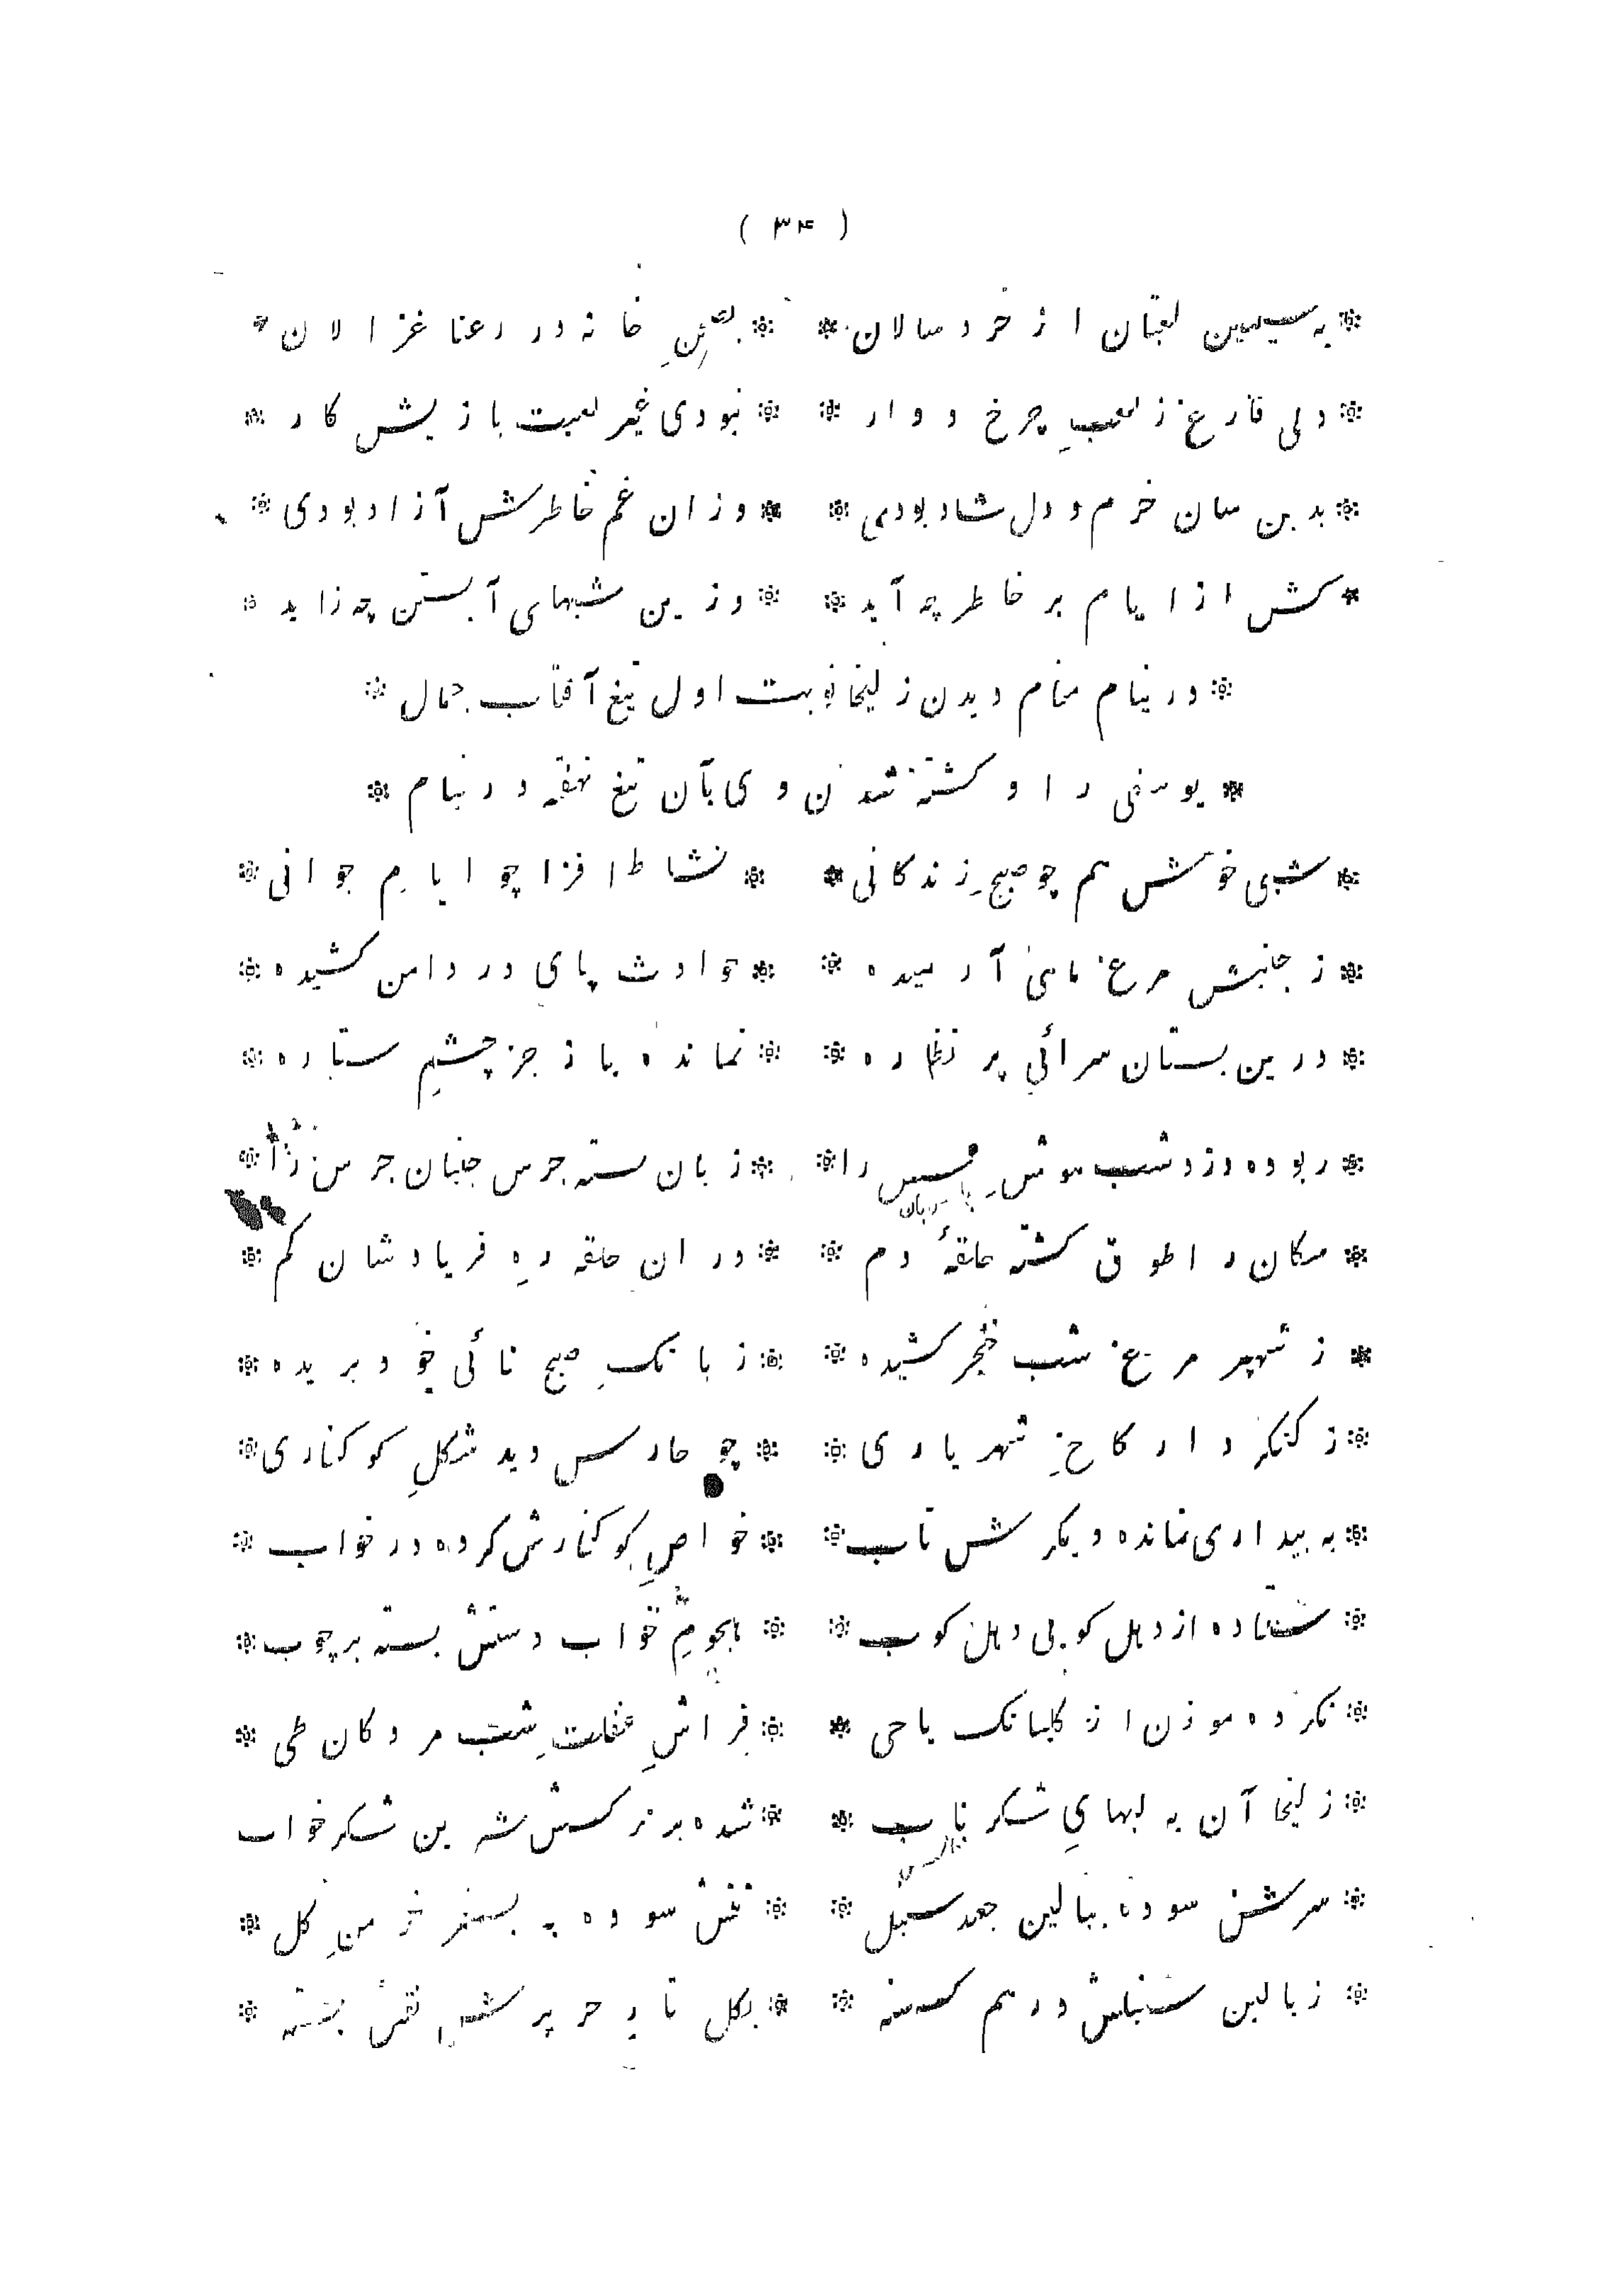 ( ۳۴ )
* به سیمین لعبتان از خرد سالان * * بصحنِ خانه در رعنا غزالان *
* دلی فارغ ز لعبِ چرخ دوار * * نبودی غیر لعبت بازیش کار *
* بدین سان خرم و دل شاد بودی * * وزان غم خاطرش آزاد بودی *
* کش از ایام بر خاطر چه آید * * وزین شبهای آبستن چه زاید *
* در نیام منام دیدن زلیخا نوبت اول تیغ آفتاب جمال *
* یوسفی را و کشته شدن وی بآن تیغ نهفته در نیام *
* شبی خوش هم چو صبحِ زندکانی * * نشاط افزا چو ایامِ جوانی *
* ز جنبش مرغ ماهی آرمیده * * حوادث پای در دامن کشیده *
* درین بستان سرائی پر نظاره * * نمانده باز جز چشمِ ستاره *
* ربوده دزد شب هوشِ عسس را * * زبان بسته جرس جنبان جرس را *
پاسبان
* سکان را طوق کشته حلقهٔ دم * * دران حلقه رهِ فریادشان کم *
* ز شهپر مرغ شب خنجر کشیده * * ز بانکِ صبح نائی خود بریده *
* ز کنکر دار کاخِ شهریاری * * چو حارس دید شکلِ کوکناری *
* به بیداری نمانده دیکرش تاب * * خواصِ کوکنارش کرده در خواب *
* ستاده از دهل کوبی دهل کوب * * هجومِ خواب دستش بسته بر چوب *
* نکرده موذن از کلبانک یا حی * * فراشِ غفلتِ شب مردکان طی *
* زلیخا آن به لبهایِ شکر ناب * * شده بر نرکسش شیرین شکر خواب
* سرش سوده ببالین جعد سنبل * * تنش سوده به بستر خرمنِ کل *
* ز بالین سنبلش در هم شکسته * * بکل تارِ حریرش نقش بسته *